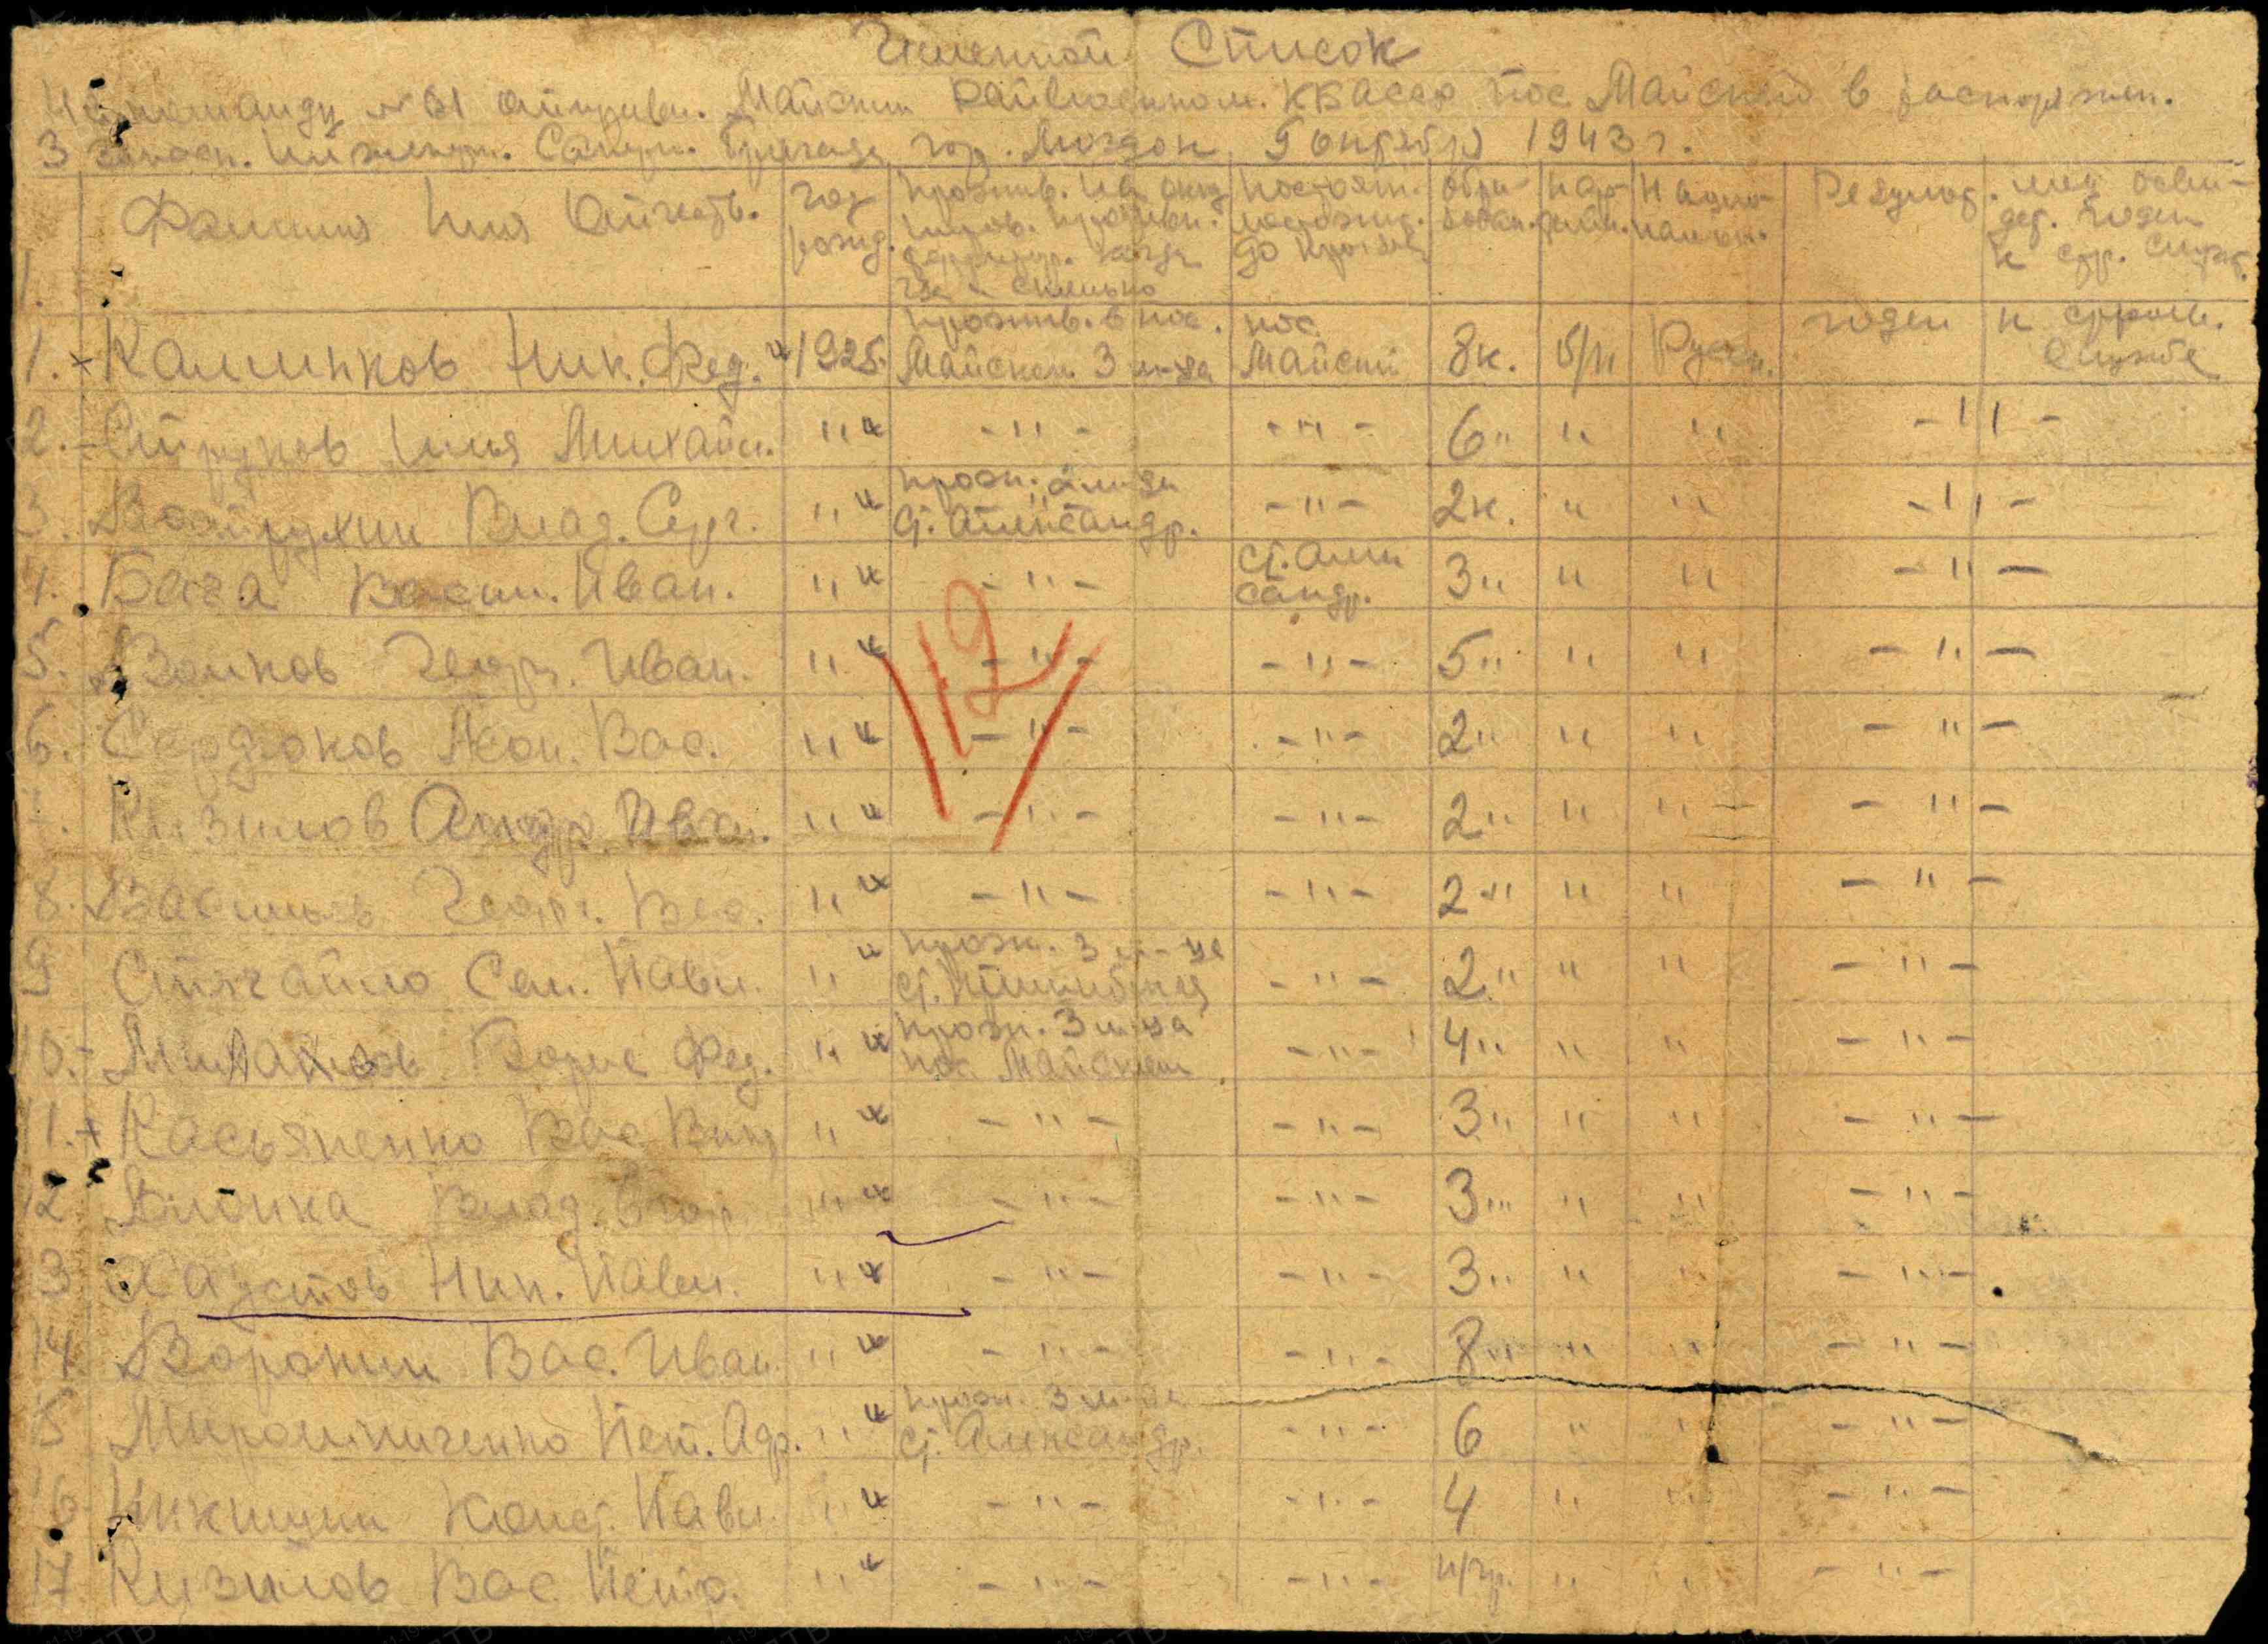 Именной Список
На команду № 61 отправл. Майским Райвоенком. КБАССР пос. Майский в распоряжен.
3 запасн. Инженерн. Саперн. Бригады гор. Моздок 9 октября 1943 г.
Фамилия Имя Отчеств. год рожд. прожив. на окк территор. когда где и сколько постоян. до призыва образован. парт Национальн. Результ. мед освидет. годен к стр. служб.
1. Калинков Ник. Фед. 1925 прожив. в пос. Майском 3 м-ца пос. Майский 8к. б/п Русск. годен к строев. службе
2. Струков Илья Михайл. " -"- -"- 6" " " -"-
3. Востружин Влад. Серг. " прож. ст. Александр. -"- 2к. " " -"-
4. Бага Васил. Иван. " -"- ст. Александр. 3" " " -"-
5. Волков Георг. Иван. " -"- -"- 5" " " -"-
6. Сердюков Вас. " -"- -"- 2" " " -"-
Кизилов Андр. Иван. " -"- -"- 2" " " -"-
8. Васильев Георг. Вас. " -"- -"- 2" " " -"-
9 Сем. Павл. " прож. 3 м-ца ст. -"- 2" " " -"-
10. Борис Фед. " прож. 3 м-ца пос. Майском -"- 4" " " -"-
11. + Касьяненко Вас " -"- -"- 3" " " -"-
12 Влад. Егор. " -"- -"- 3" " " -"-
3 Хаустов Ник. Павл. " -"- -"- 3" " " -"-
14 Воронин Вас. Иван. " -"- -"- 8" " " -"-
15 Мирошниченко Пет. Адр. " прож. 3 м-ца ст. Александр. -"- 6 " " -"-
16 Никишин Конст. Павл. " -"- -"- 4 " " -"-
17 Кизилов Вас Петр. " -"- -"- н/гр. " " -"-
12